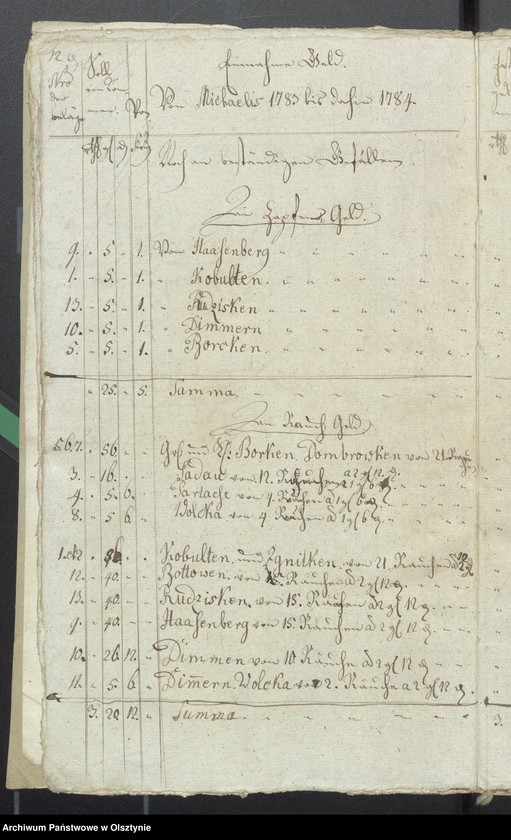 Einnahme Geld.
Nro der beläge
Soll einkommen.
Von Michaelis 1783 bis dahin 1784.
Noch an beständigen Gefällen
An Zapfens Geld.
9. " 5 " 1. Von Haasenberg
1. " 5. " 1. " Kobulten.
13. " 5. " 1. " Rudzisken
10. " 5. " 1. " Dimmern
5. " 5. " 1. " Borcken.
" 25. " 5. Summa
An Rauch Geld
5.6.7. " 56. Groß und Kl: Borken, Dombrowken von 21. Rauch
3. " 16. von 12. Rauchen
4. " 5. 6. von 4 Rauchen a 1 gl 6 d.
8. " 5 6. Wolcka von 4 Rauchen a 1 gl 6 d.
Kobulten und von 21. Rauchen
12. " 40. Bottowen von 15. Rauchen a 2 gl 12 d.
13. " 40. Rudzisken von 15. Rauchen a 2 gl 12 d.
9. " 40. Haasenberg von 15. Rauchen a 2 gl 12 d.
10. " 26 12. " Dimmen von 10 Rauche a 2 gl 12 d.
11. " 5. 6. " Dimern. Wolcka von 2. Rauche a 2 gl 12 d.
3. 20 12. " Summa.
3.
Archiwum Państwowe w Olsztynie